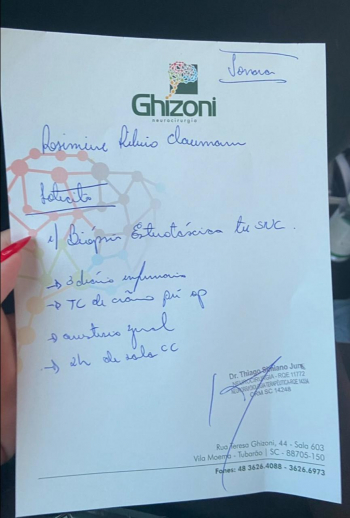 Ghizoni
neurocirurgia
Rosimeire
Solicito
1) Biópsia Estereotáxica tu SNC.
→ 3 diária enfermaria
→ TC de crânio pré op
→ anestesia geral
→ 2h de sala CC
Dr. Thiago
NEUROCIRURGIA - RQE 11772
Rua Teresa Ghizoni, 44 - Sala 603
Vila Moema - Tubarão | SC - 88705-150
Fones: 48 3626.4088 - 3626.6973